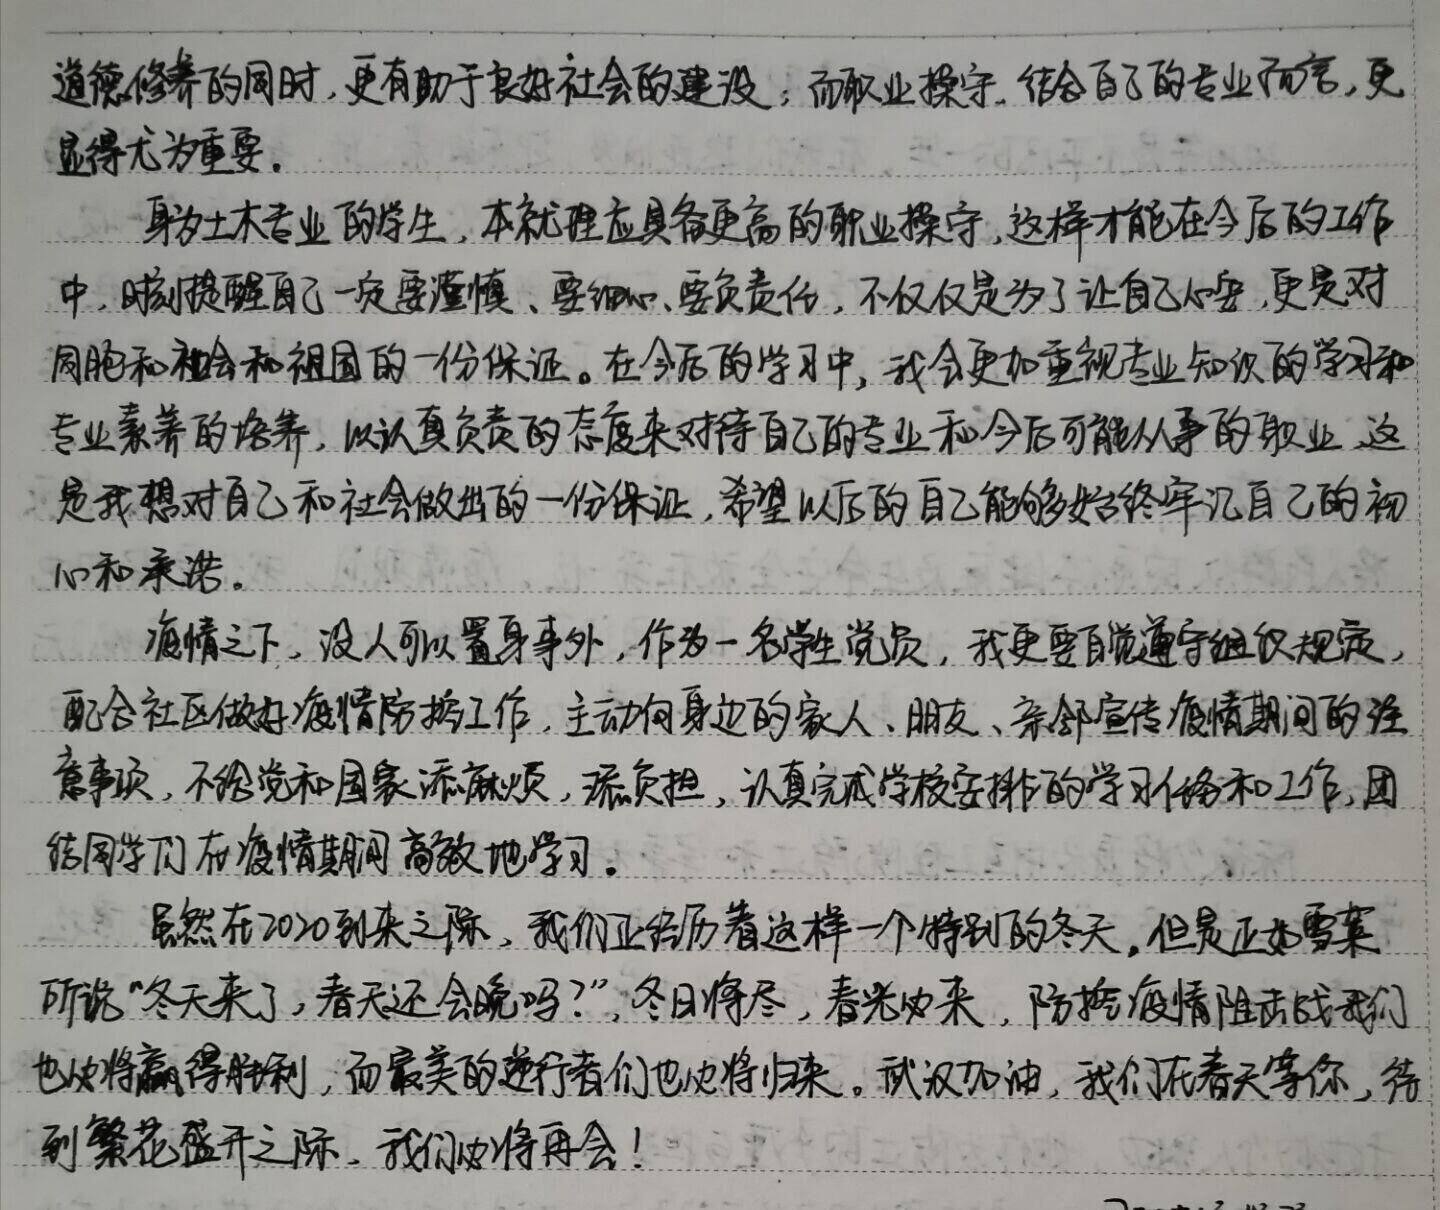 道德修养的同时，更有助于良好社会的建设；而职业操守，结合自己的专业而言，更
显得尤为重要。
身为土木专业的学生，本就理应具备更高的职业操守，这样才能在今后的工作
中，时刻提醒自己一定要谨慎、要细心、要负责任，不仅仅是为了让自己心安，更是对
同胞和社会和祖国的一份保证。在今后的学习中，我会更加重视专业知识的学习和
专业素养的培养，以认真负责的态度来对待自己的专业和今后可能从事的职业，这
是我想对自己和社会做出的一份保证，希望以后的自己能够始终牢记自己的初
心和承诺。
疫情之下，没人可以置身事外，作为一名学生党员，我更要自觉遵守组织规定，
配合社区做好疫情防控工作，主动向身边的家人、朋友、亲邻宣传疫情期间的注
意事项，不给党和国家添麻烦，添负担，认真完成学校安排的学习任务和工作，团
结同学们在疫情期间高效地学习。
虽然在2020到来之际，我们正经历着这样一个特别的冬天，但是正如雪莱
所说“冬天来了，春天还会晚吗？”，冬日将尽，春光必来，防控疫情阻击战我们
也必将赢得胜利，而最美的逆行者们也必将归来。武汉加油，我们在春天等你，待
到繁花盛开之际，我们必将再会！